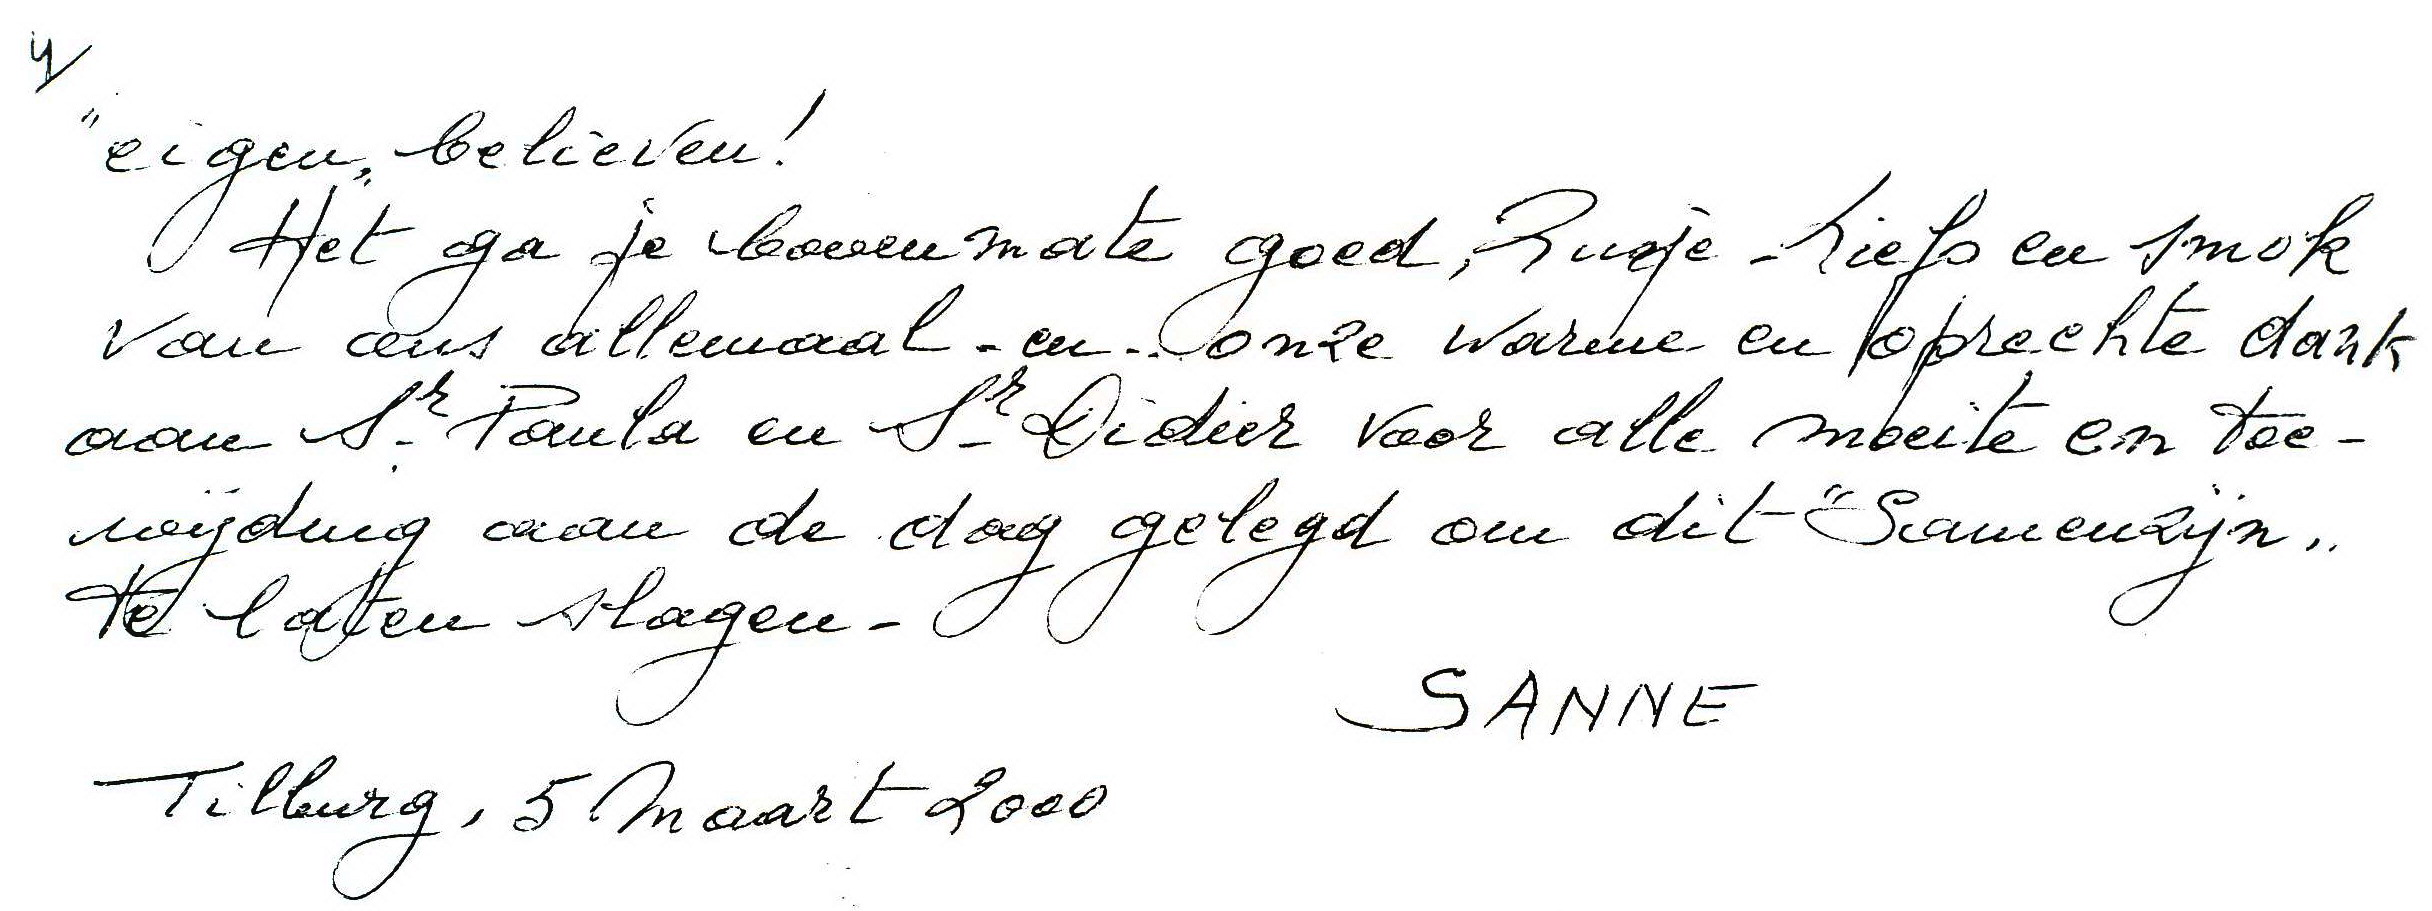 4/
"eigen„ believen!
Het ga je bovenmate goed, Liefs en smok
van ons allemaal - en - onze warme en oprechte dank
aan Sr Paula en Sr Didier voor alle moeite en toe-
wijding aan de dag gelegd om dit "Samenzijn„
te laten slagen -
SANNE
Tilburg, 5 Maart 2000